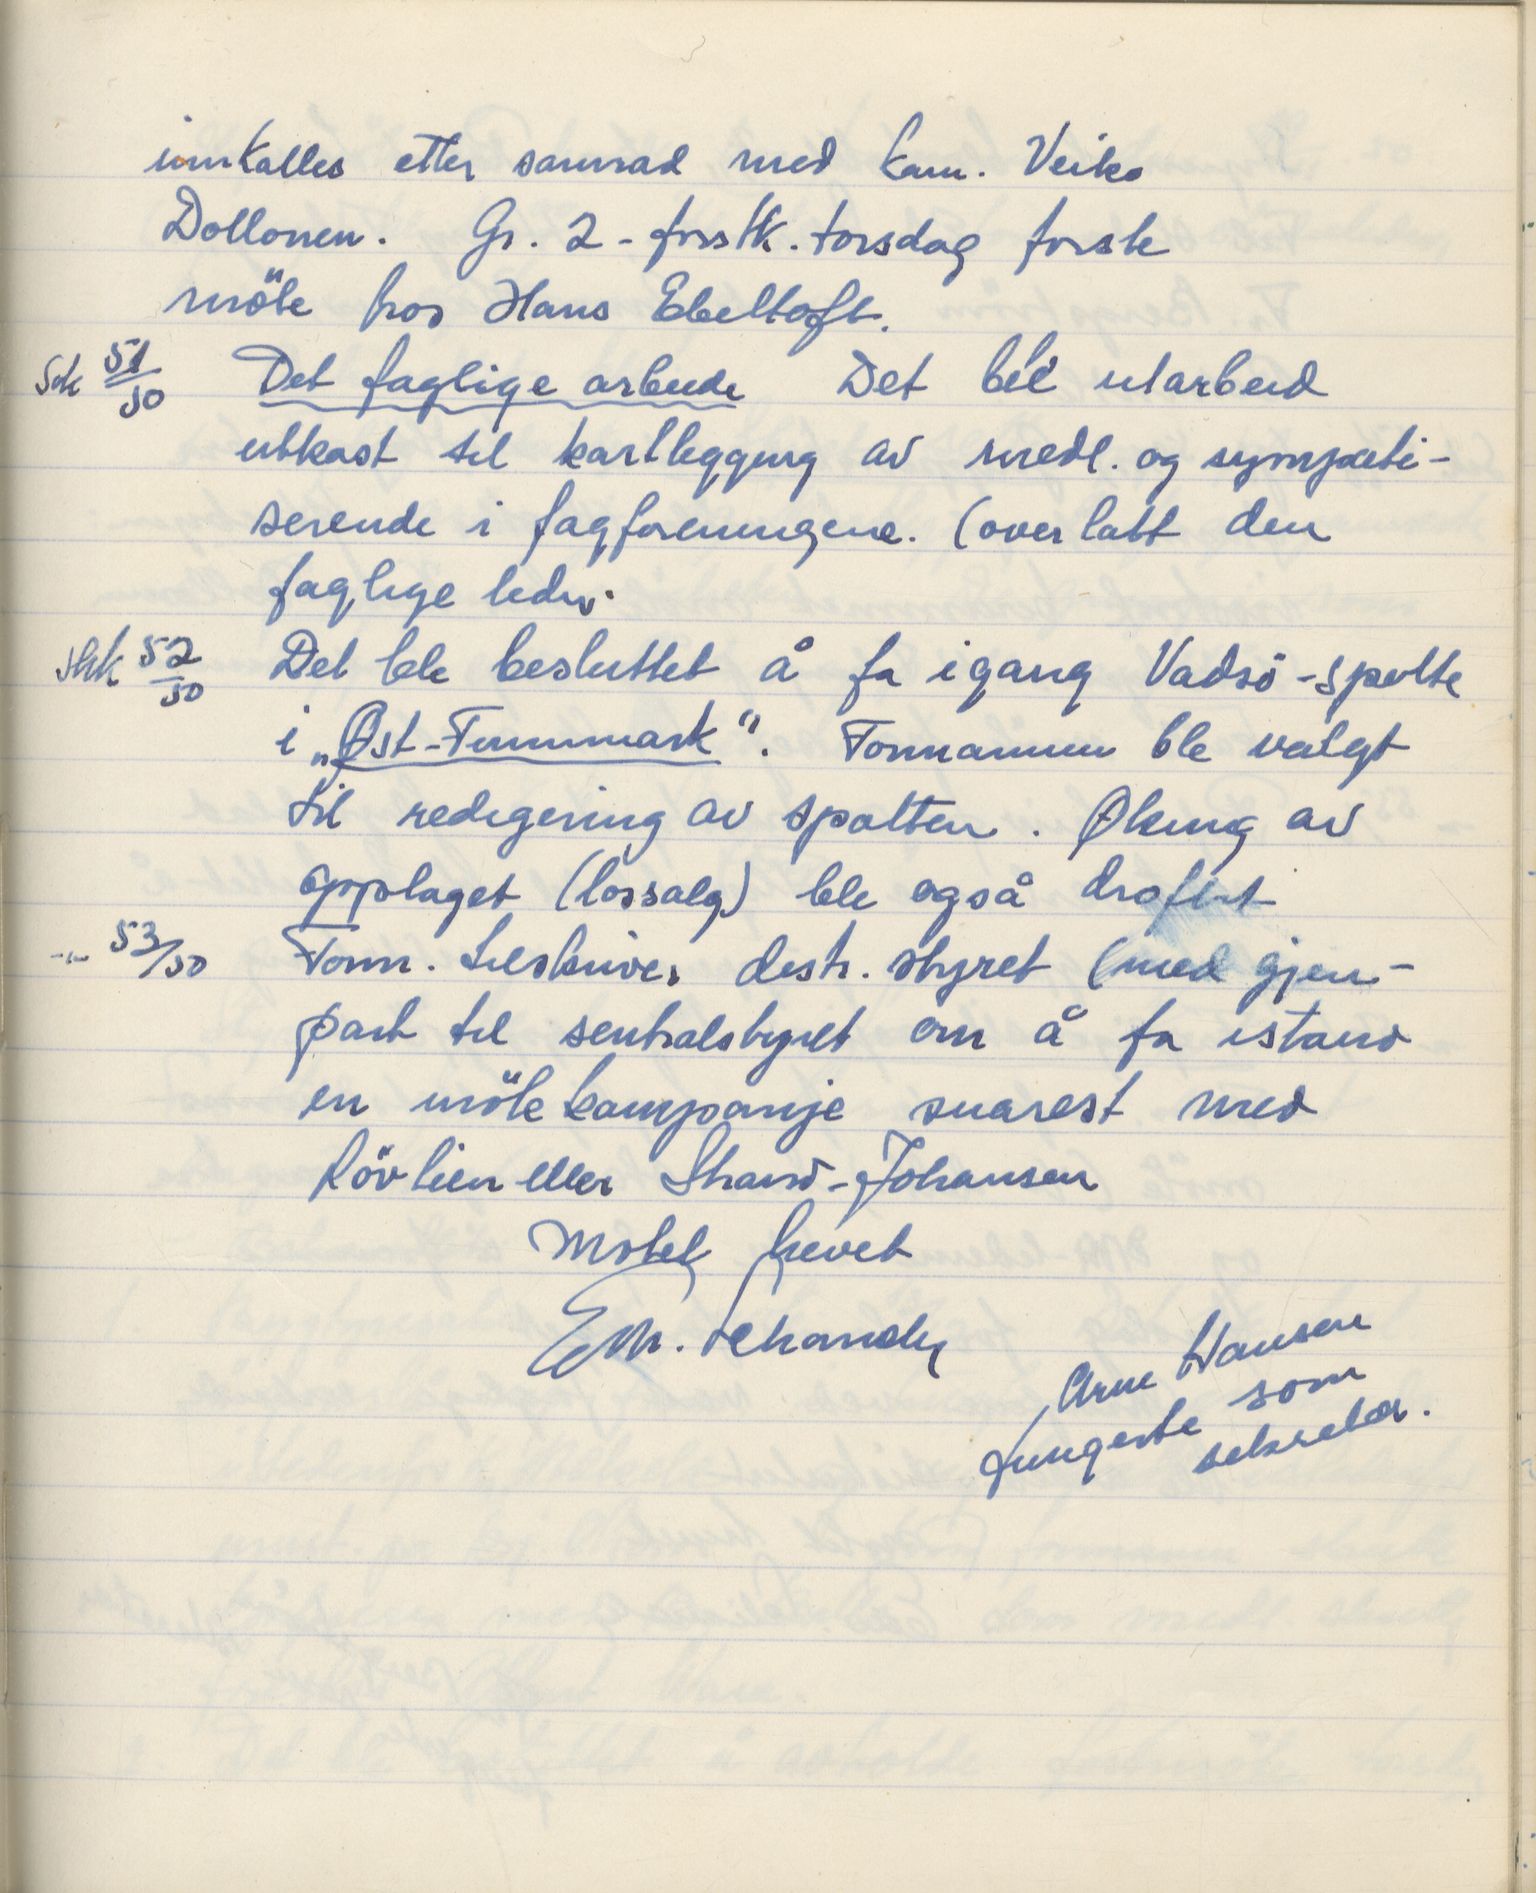 innkalles etter samråd med kam. Veiko
Dollonen. Gr. 2 - forstk. torsdag forste
möte hos Hans Ebeltoft.
Sak 51/50 Det faglige arbeide Det ble utarbeid
utkast til kartlegging av medl. og sympati-
serende i fagforeningene. (overlatt den
faglige leder.
Sak 52/50 Det ble besluttet å fa igang Vadsö-spalte
i „Øst-Finnmark". Formannen ble valgt
til redigering av spalten. Økning av
opplaget (lössalg) ble også droftet
-"- 53/50 Form. tilskriver distr. styret (med gjen-
part til sentralstyret om å fa istand
en mötekampanje snarest med
Lövlien eller Strand-Johansen
Motet hevet
Em.
Arne Hansen
fungerte som
sekretær.